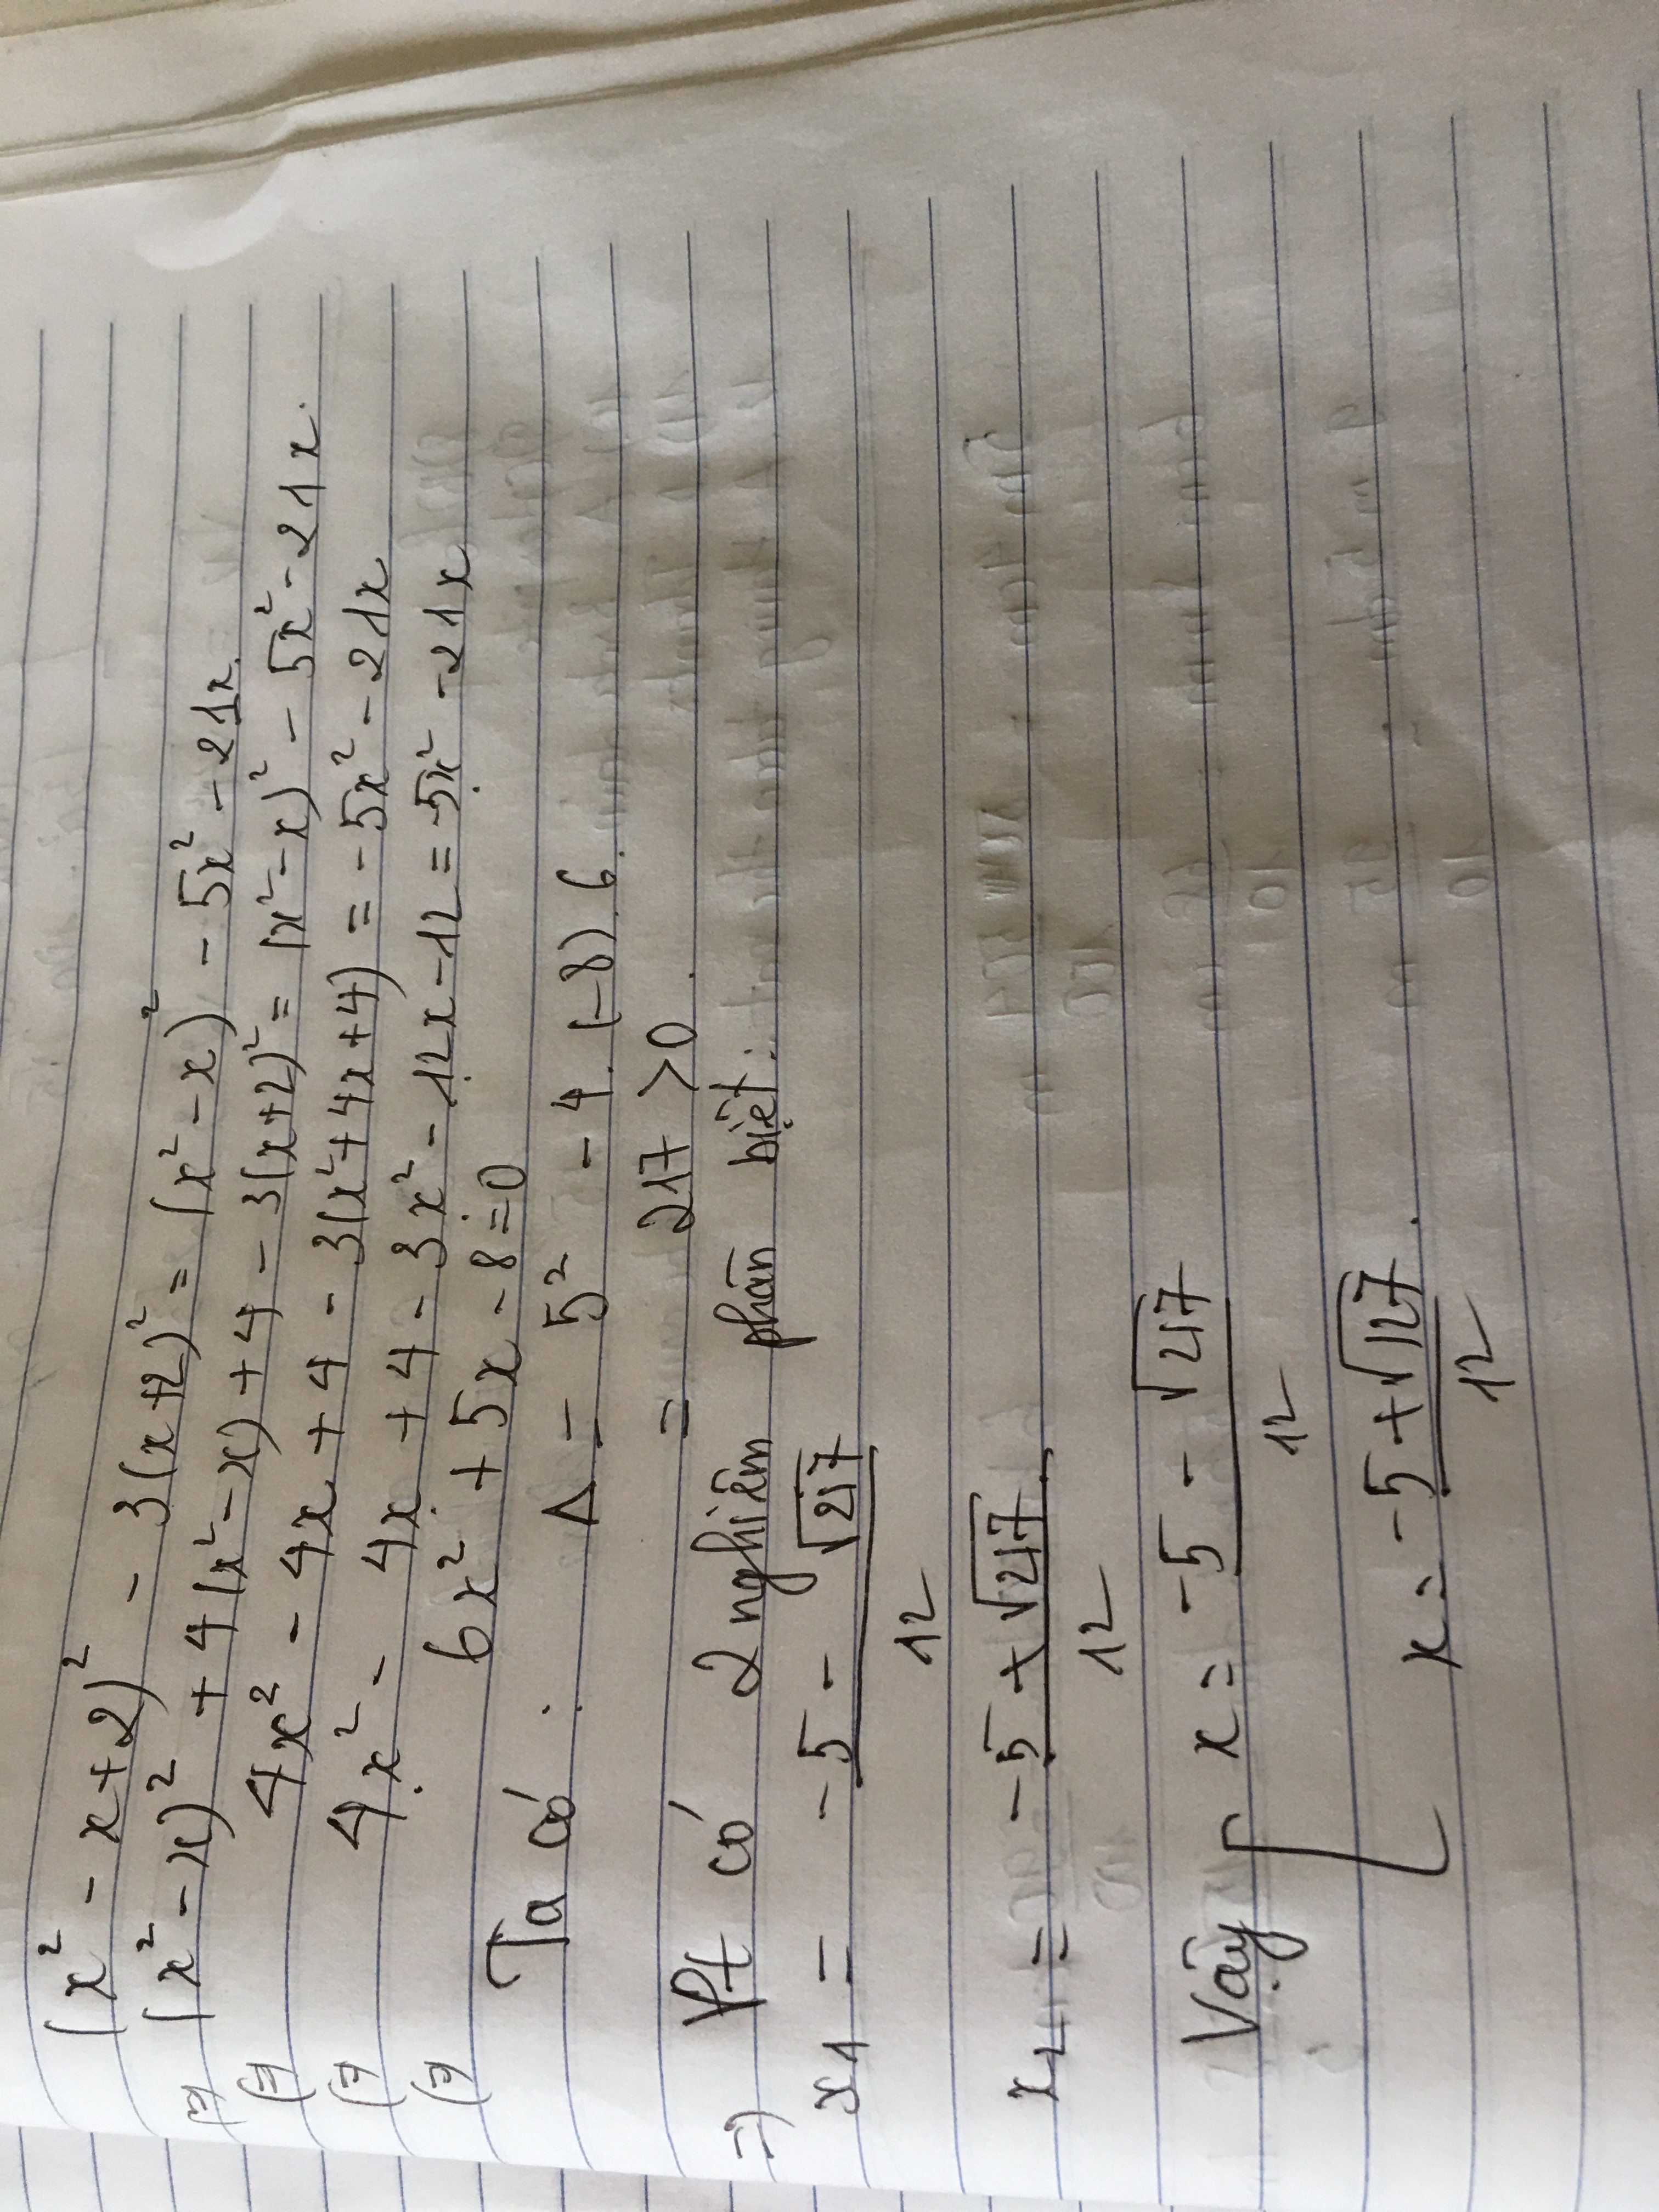 (x² - x + 2)² - 3(x+2)² = (x² - x)² - 5x² - 21x.
(=) (x² - x)² + 4(x² - x) + 4 - 3(x+2)² = (x² - x)² - 5x² - 21x.
(=) 4x² - 4x + 4 - 3(x² + 4x + 4) = - 5x² - 21x
(=) 4x² - 4x + 4 - 3x² - 12x - 12 = -5x² - 21x
(=) 6x² + 5x - 8 = 0
Ta có : Δ = 5² - 4.(-8).6.
= 217 > 0.
=) Pt có 2 nghiêm phân biệt:
x1 = -5 - √217
12
x2 = -5 + √217.
12
Vậy [ x = -5 - √217
12
x = -5 + √127.
12